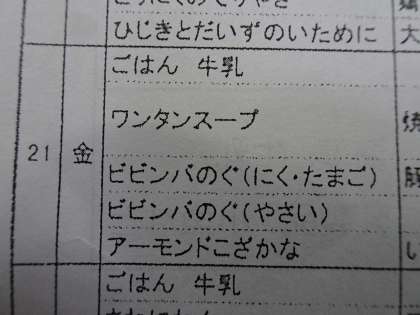 ひじきとだいずのいために 大
ごはん 牛乳
ワンタンスープ
21 金
ビビンバのぐ(にく・たまご) 豚
ビビンバのぐ(やさい)
アーモンドこざかな い
ごはん 牛乳